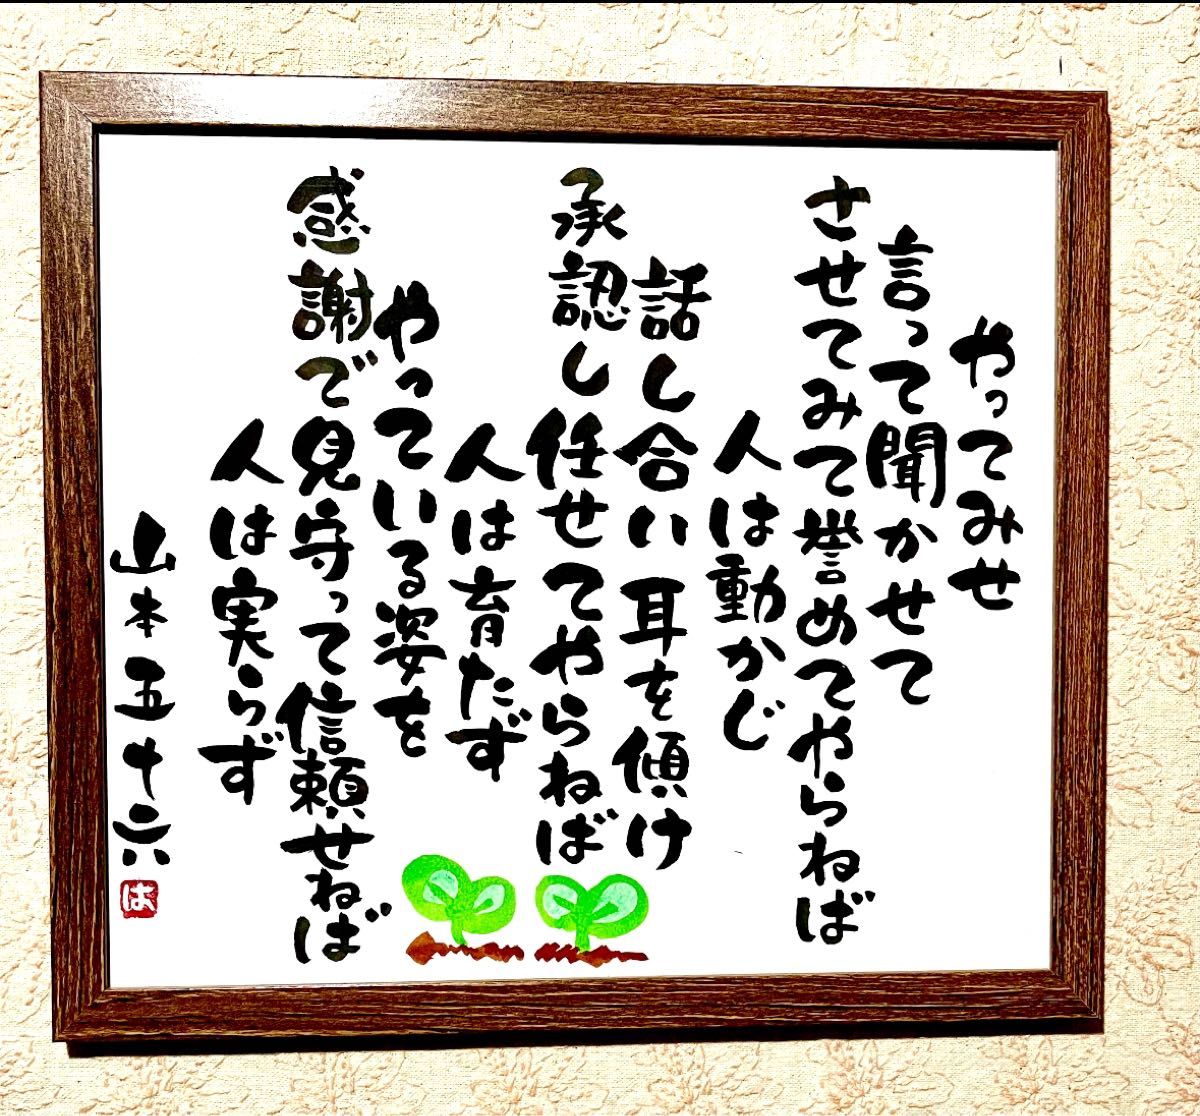 やってみせ
言って聞かせて
させてみて誉めてやらねば
人は動かじ
話し合い耳を傾け
承認し任せてやらねば
人は育たず
やっている姿を
感謝で見守って信頼せねば
人は実らず
山本五十六
は